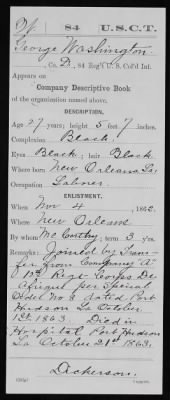 W | 84 | U.S.C.T.
George Washington
, Co. D, 84 Reg't U. S. Col'd Inf.
Appears on
Company Descriptive Book
of the organization named above.
DESCRIPTION.
Age 27 years; height 5 feet 7 inches.
Complexion Black
Eyes Black; hair Black
Where born New Orleans, La
Occupation Laborer
ENLISTMENT.
When Nov 4, 1862.
Where New Orleans
By whom McCarthy; term 3 y'rs.
Remarks: Joined by Trans-
fer from Company "A"
1st Regt Corps De
Afrique per Special
Order No 8 dated Port
Hudson La October
1st 1863 Died in
Hospital Port Hudson
La October 21st 1863.
Dickerson
Copyist.